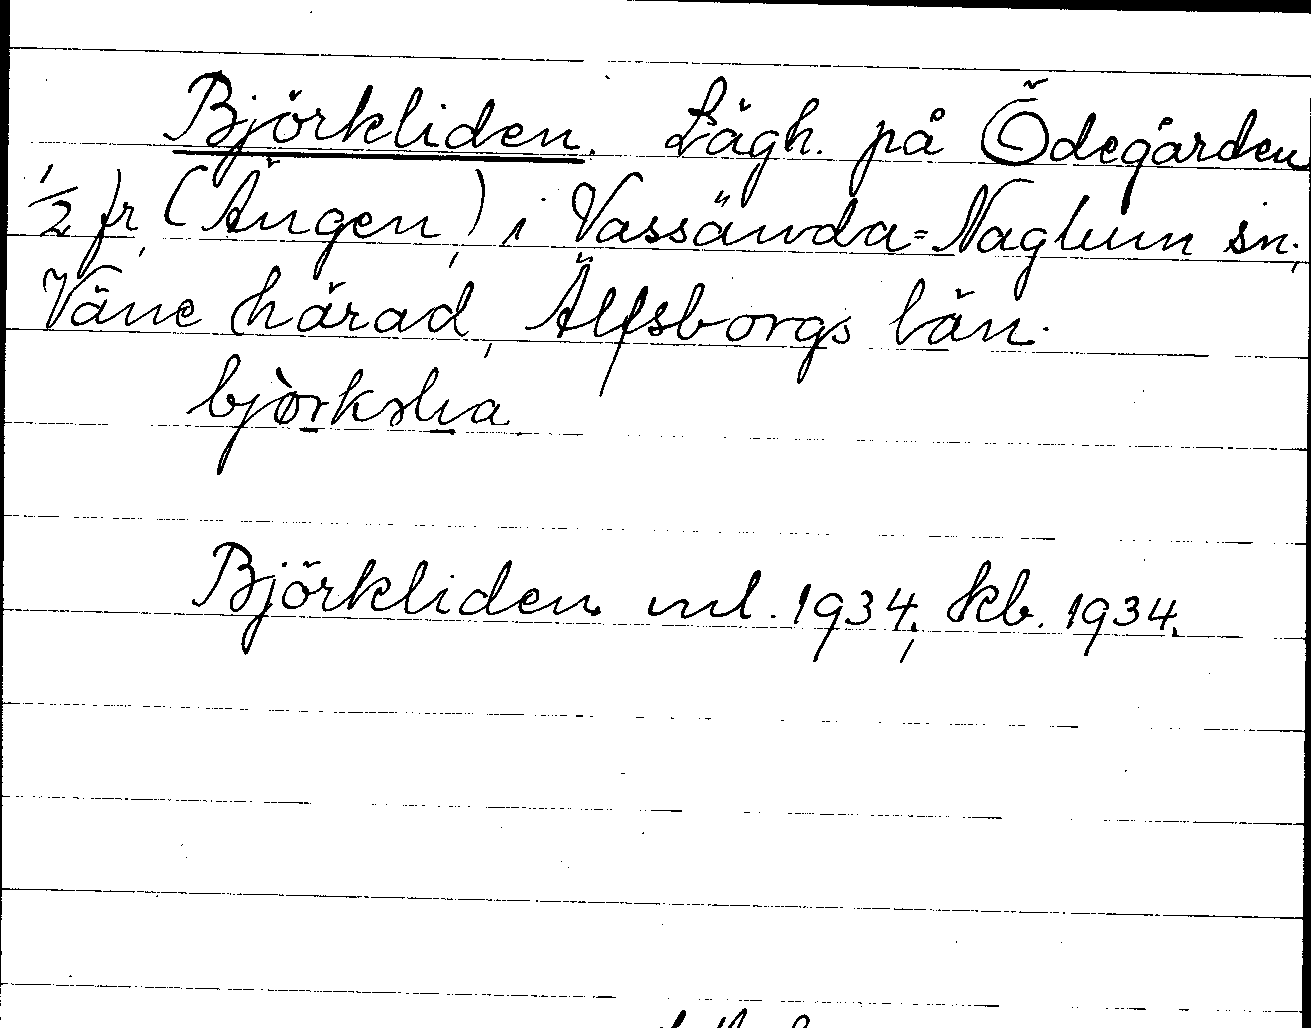 Björkliden. Lägh. på Ödegården
1/2 fr. (Ängen,) i Vassända=Naglum sn;
Väne härad, Älfsborgs län.
Björkliden ml. 1934; kb. 1934.